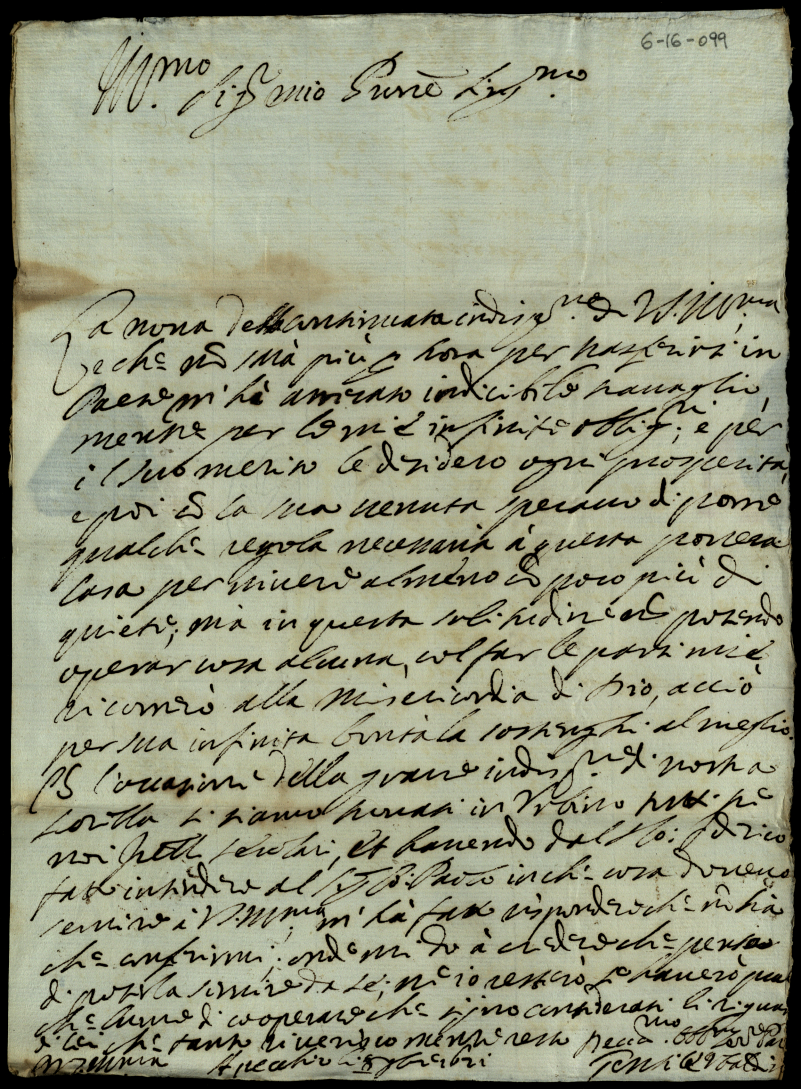 6-16-099
Ill.mo Sig.r mio Pnrē
La nova della continuata indisp.ne di V.S. Ill.ma
e che nō sarà più p hora per trasferirsi in
Paese mi hà arrecato indicibile travaglio,
mentre per le mie infinite obblig.ni, e per
il suo merito le desidero ogni prosperità,
e poi cō la sua venuta speravo di porre
qualche regola necessaria à questa povera
Casa per vivere almeno cō poco più di
quiete; mà in questa solitudine nō potendo
operar cosa alcuna, col far le parti mie,
ricorrerò alla Misericordia di Dio, acciò
per sua infinita bontà la sostenghi al meglio.
Cō l'occasione della grave indisp.ne di nostra
sorella si siamo trovati in Urbino
noi frelli, et havendo dal
fatto intendere al Sig. Paolo in che cosa dovevo
servire à V.S. Ill.ma, mi hà fatto rispondere che nō hà
che conferirmi; onde mi do à credere che pensa
di poterla servire da se; ne io resterò, se haverò qual
che lume di cooperare che sijno considerati li
di lei che tanto riverisco mentre resto
V.S. Ill.ma Apecchio li 8bre